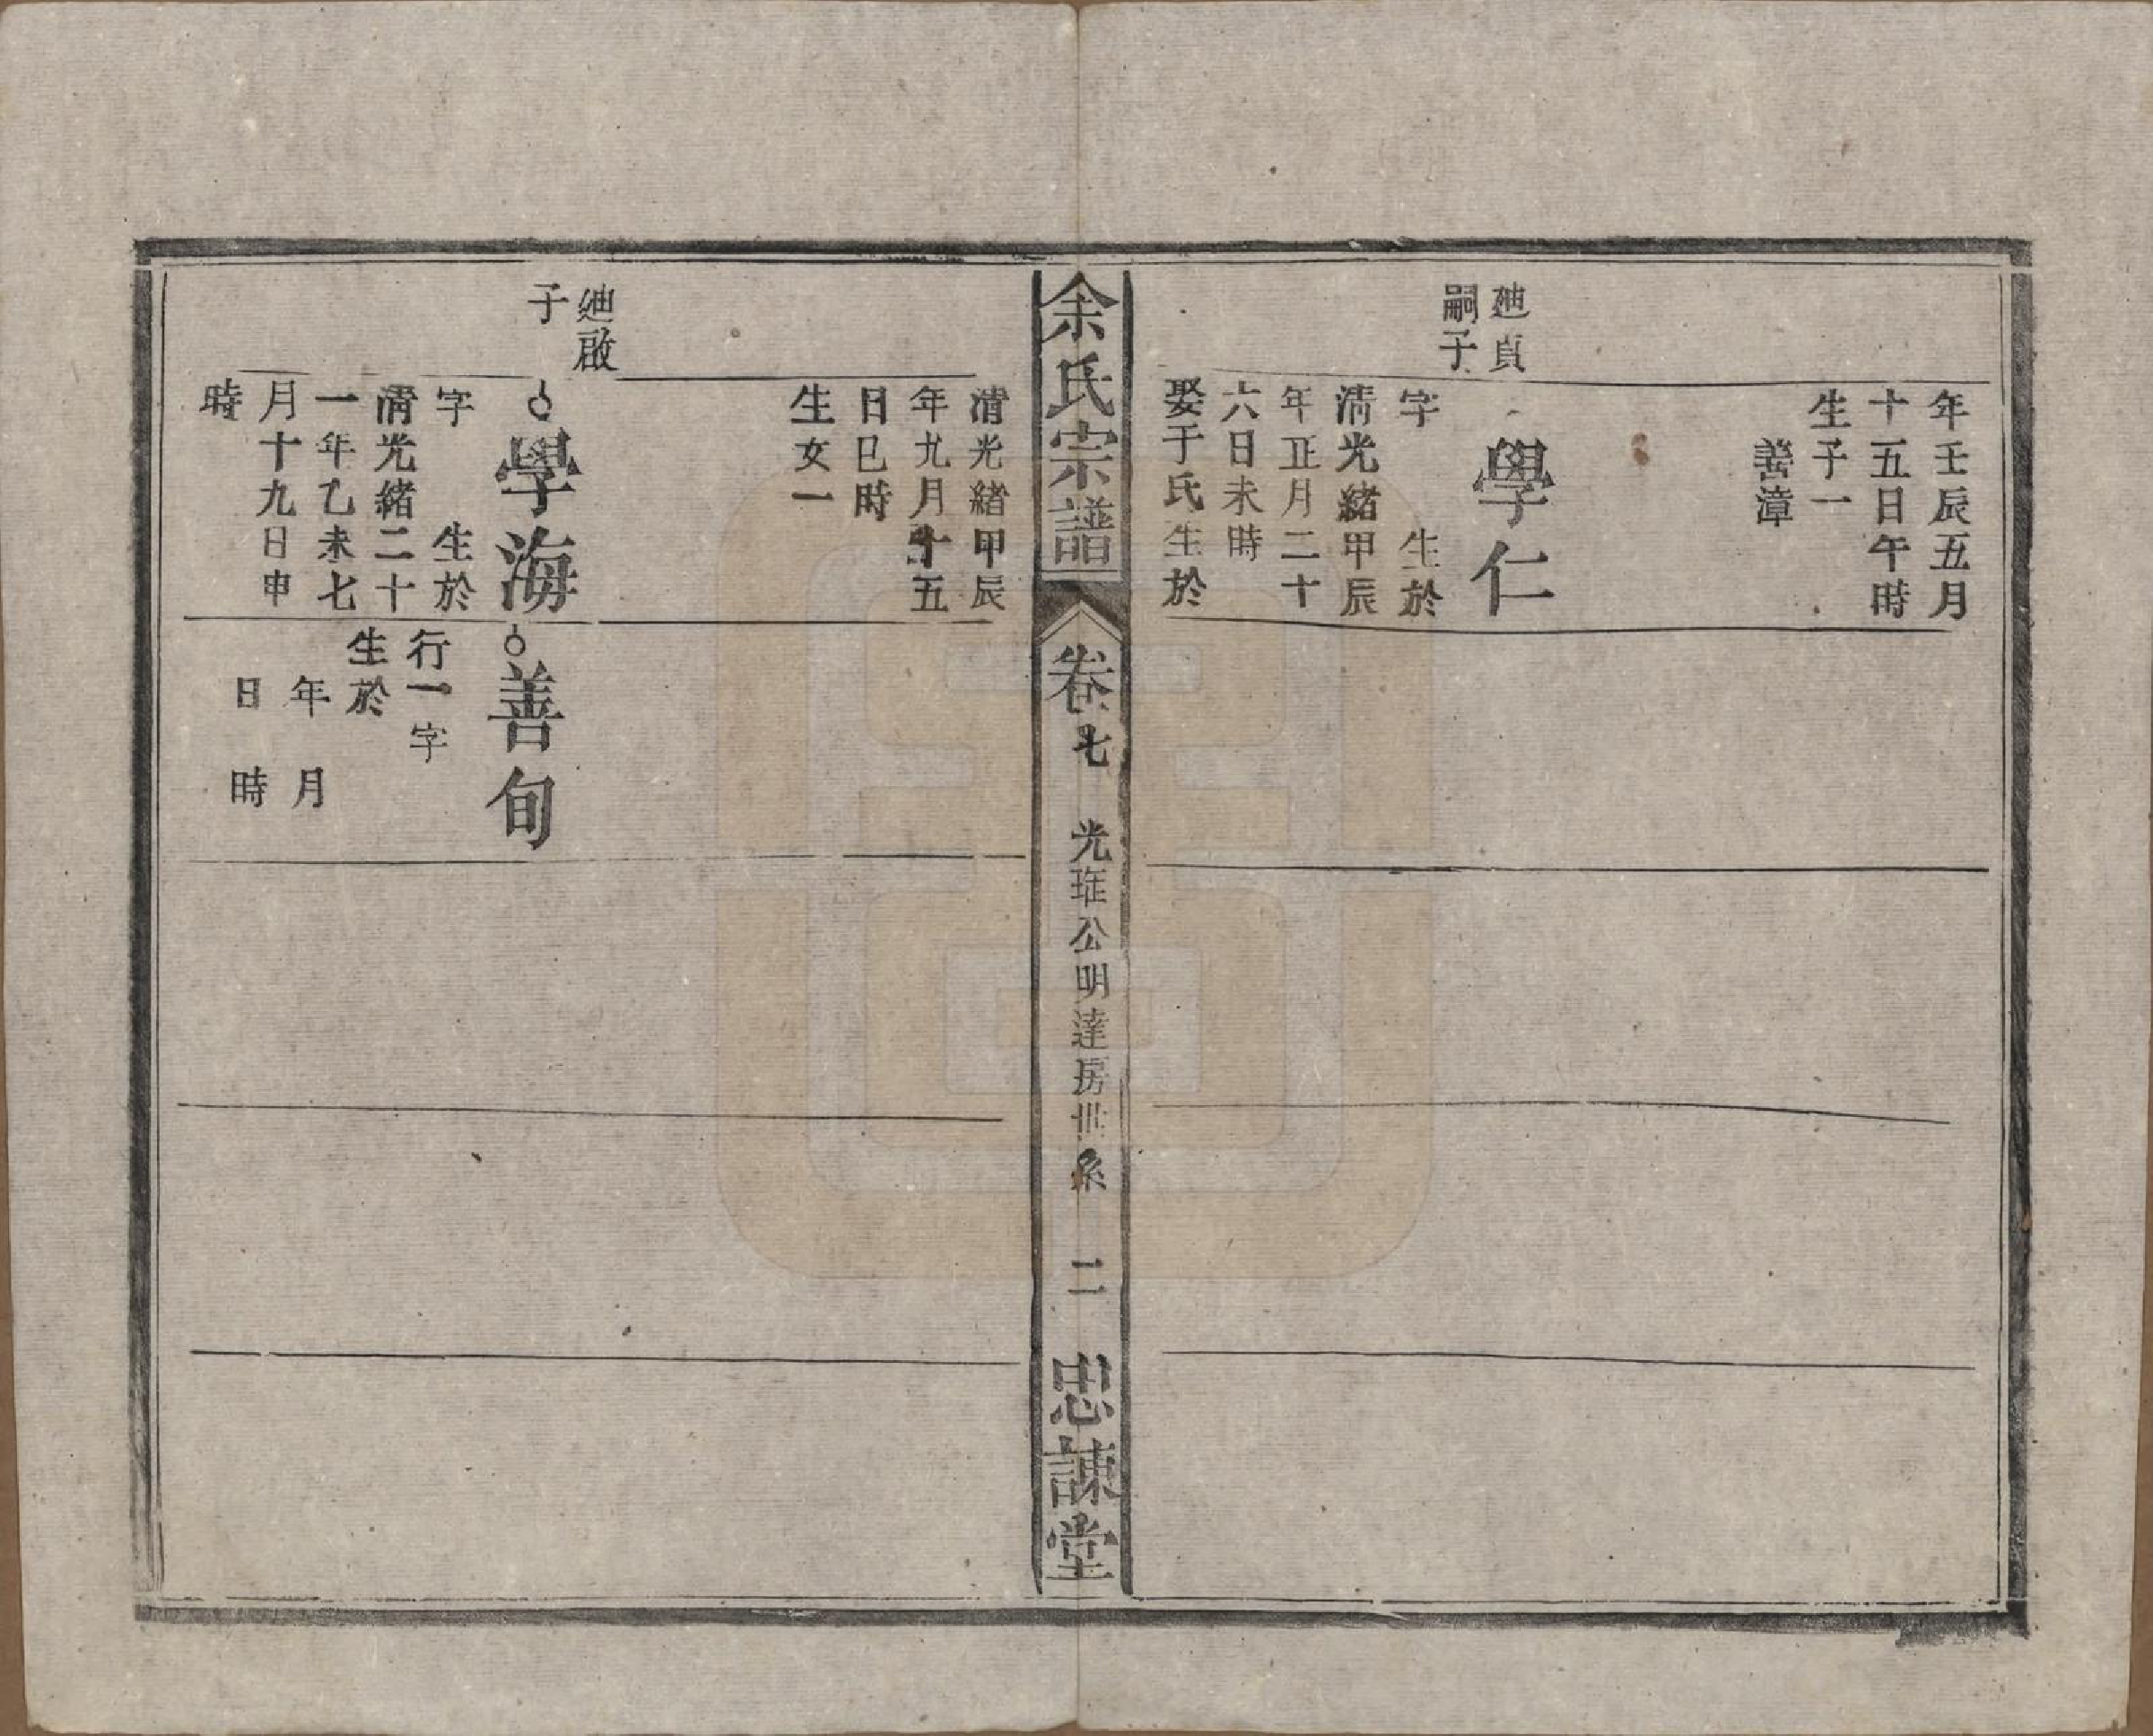 年壬辰五月
十五日午時
生子一
善漳
廸貞
嗣子
學仁
字　生於
淸光緖甲辰
年正月二十
六日未時
娶于氏生於
余氏宗譜
卷七
光琟公明達房世系
二
忠諫堂
淸光緖甲辰
年九月十五
日巳時
生女一
廸啟
子
學海
字　生於
淸光緒二十
一年乙未七
月十九日申
時
善旬
行一字
生於
年　月
日　時